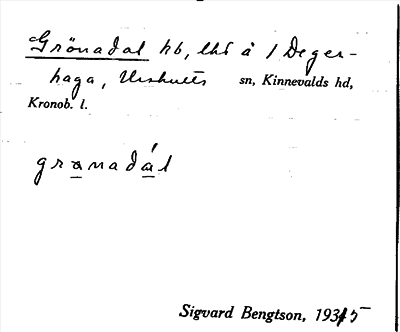 Grönadal hb, lht å 1 Deger-
haga, Urshults sn, Kinnevalds hd,
Kronob. l.
granadál
Sigvard Bengtson, 1935